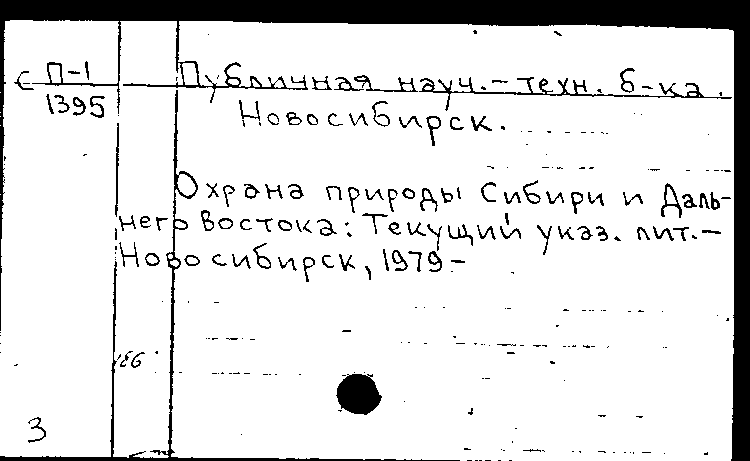 С П-1
1395
Публичная науч.-техн. б-ка.
Новосибирск.
Охрана природы Сибири и Даль-
него Востока: Текущий указ. лит.-
Новосибирск, 1979-
186
3